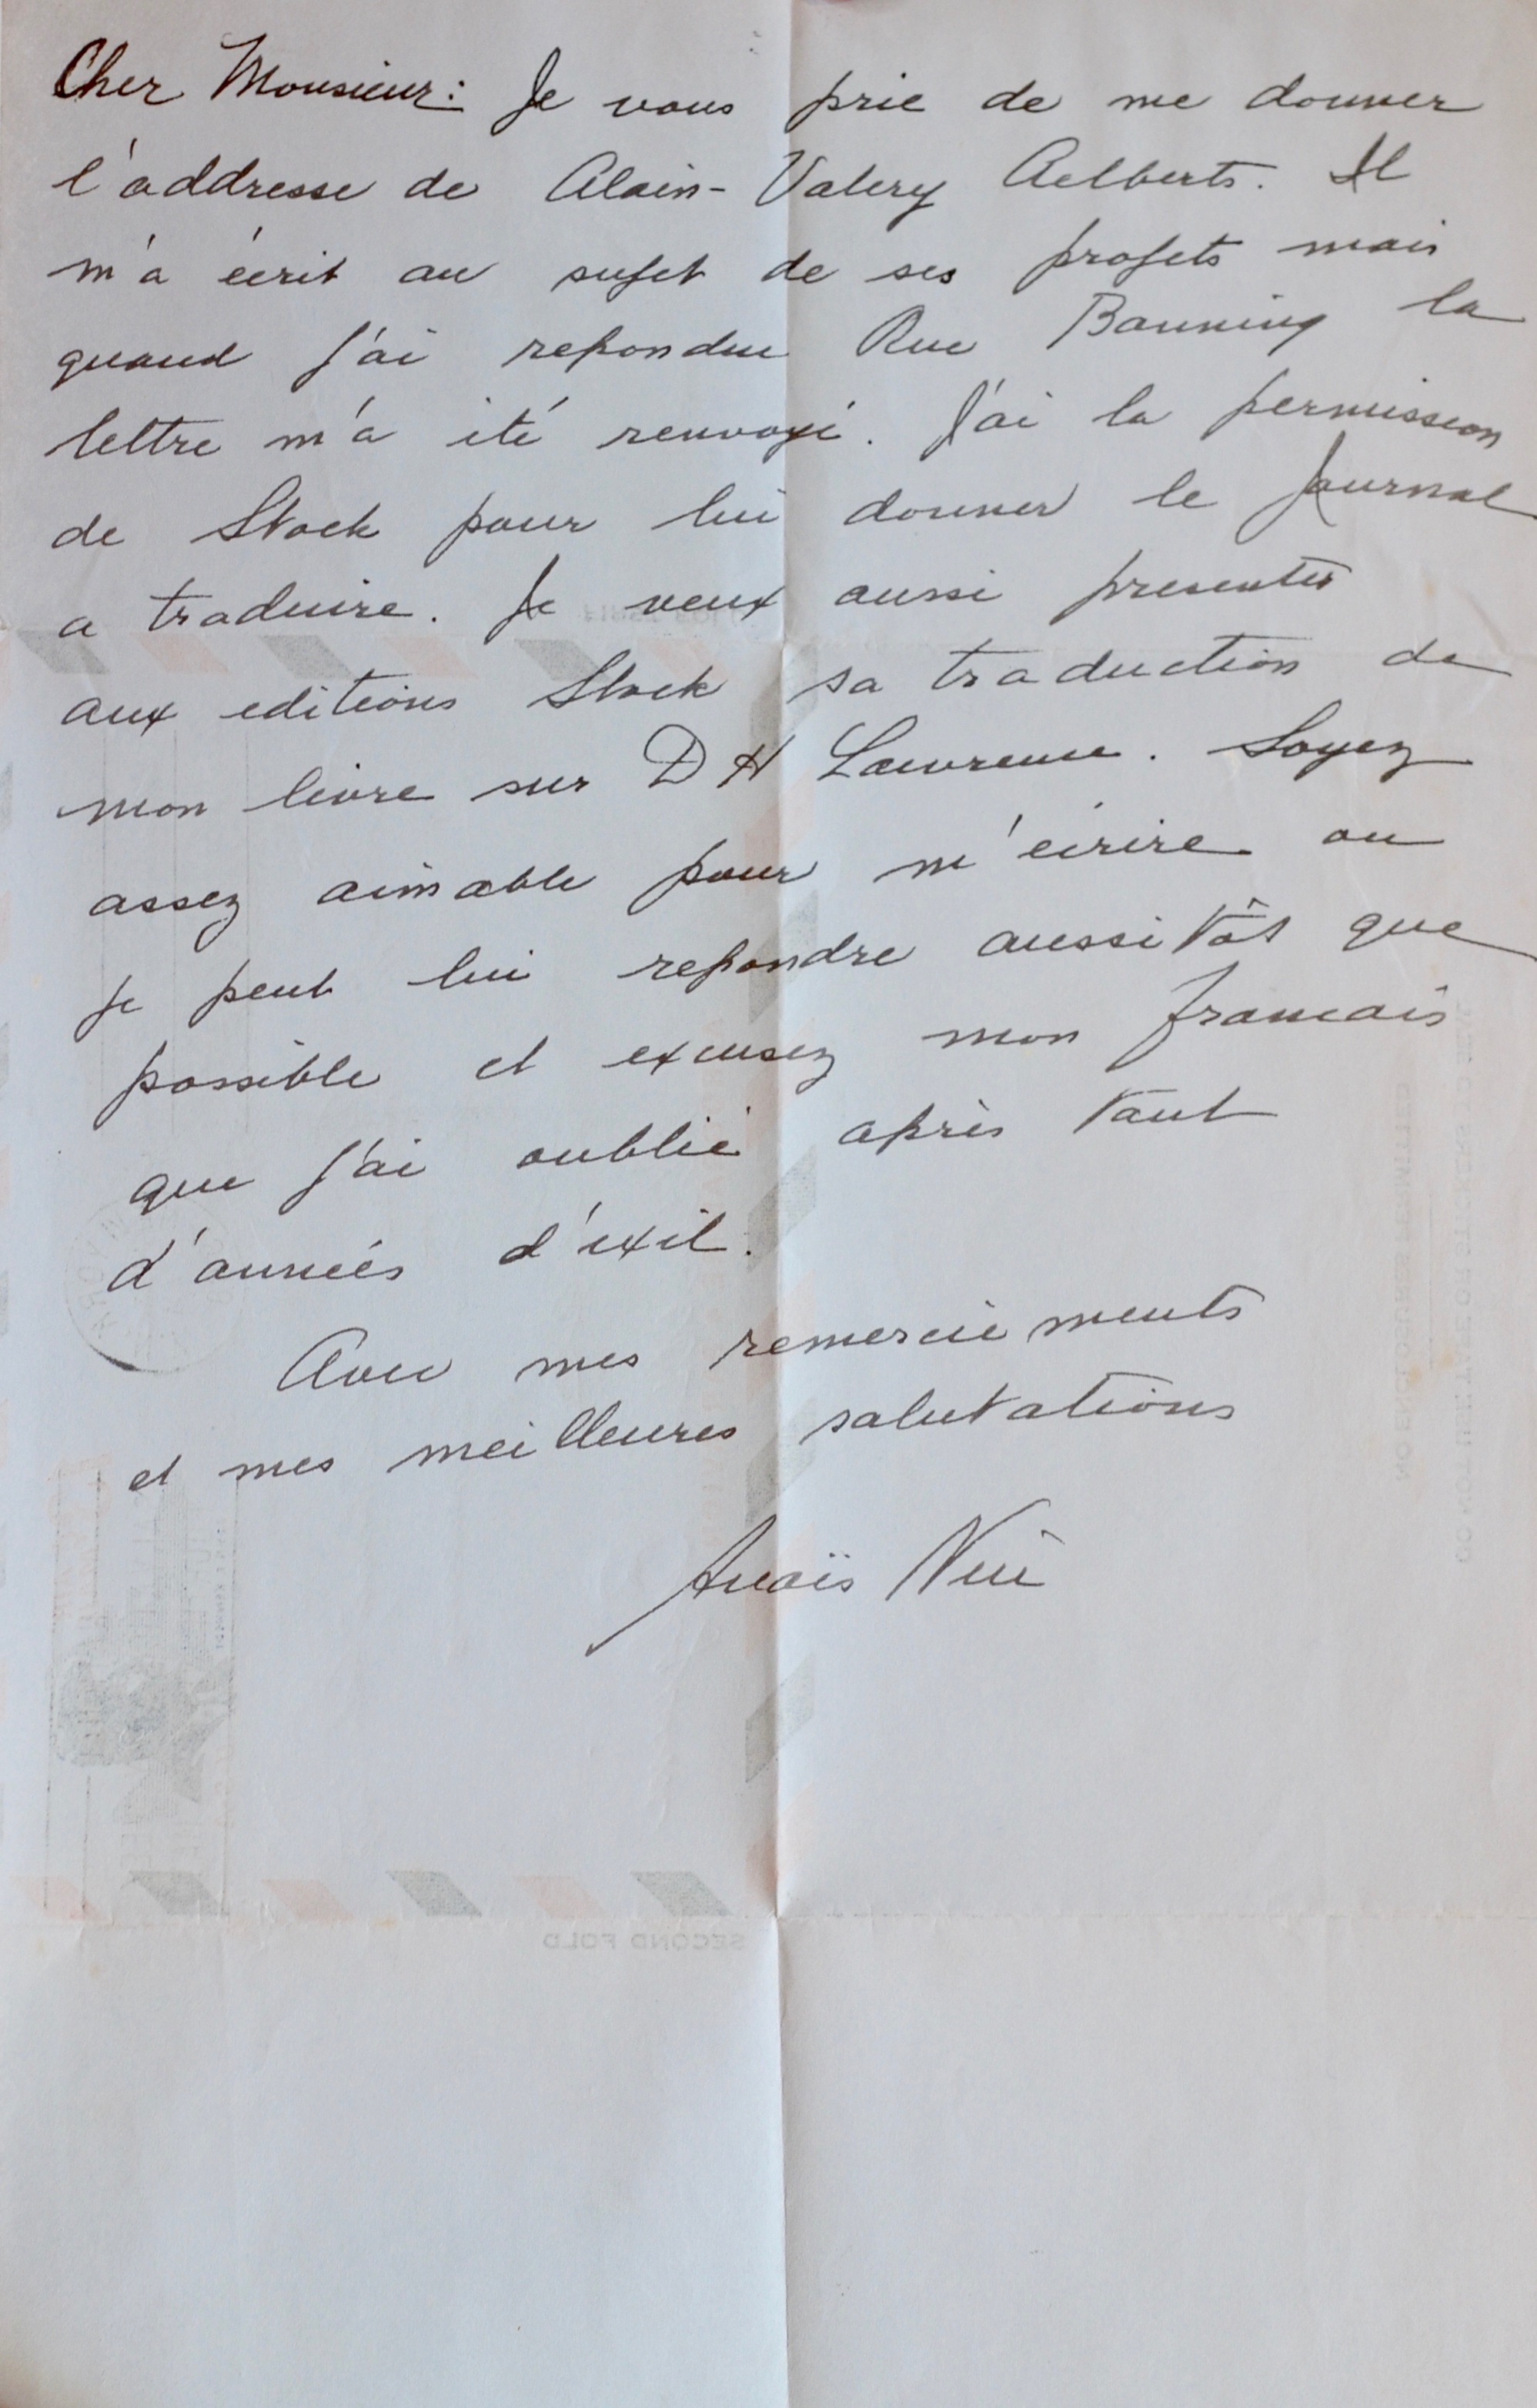 Cher Monsieur: Je vous prie de me donner
l'addresse de Alain-Valery Aelberts. Il
m'a écrit au sujet de ses projets mais
quand j'ai repondu Rue Banning la
lettre m'a été renvoyé. J'ai la permission
de Stock pour lui donner le Journal
a traduire. Je veux aussi presenter
aux editions Stock sa traduction de
mon livre sur D H Lawrence. Soyez
assez aimable pour m'écrire ou
je peut lui repondre aussitôt que
possible et excusez mon francais
que j'ai oublié après tant
d'années d'exil.
Avec mes remerciements
et mes meilleures salutations
Anaïs Nin
SECOND FOLD